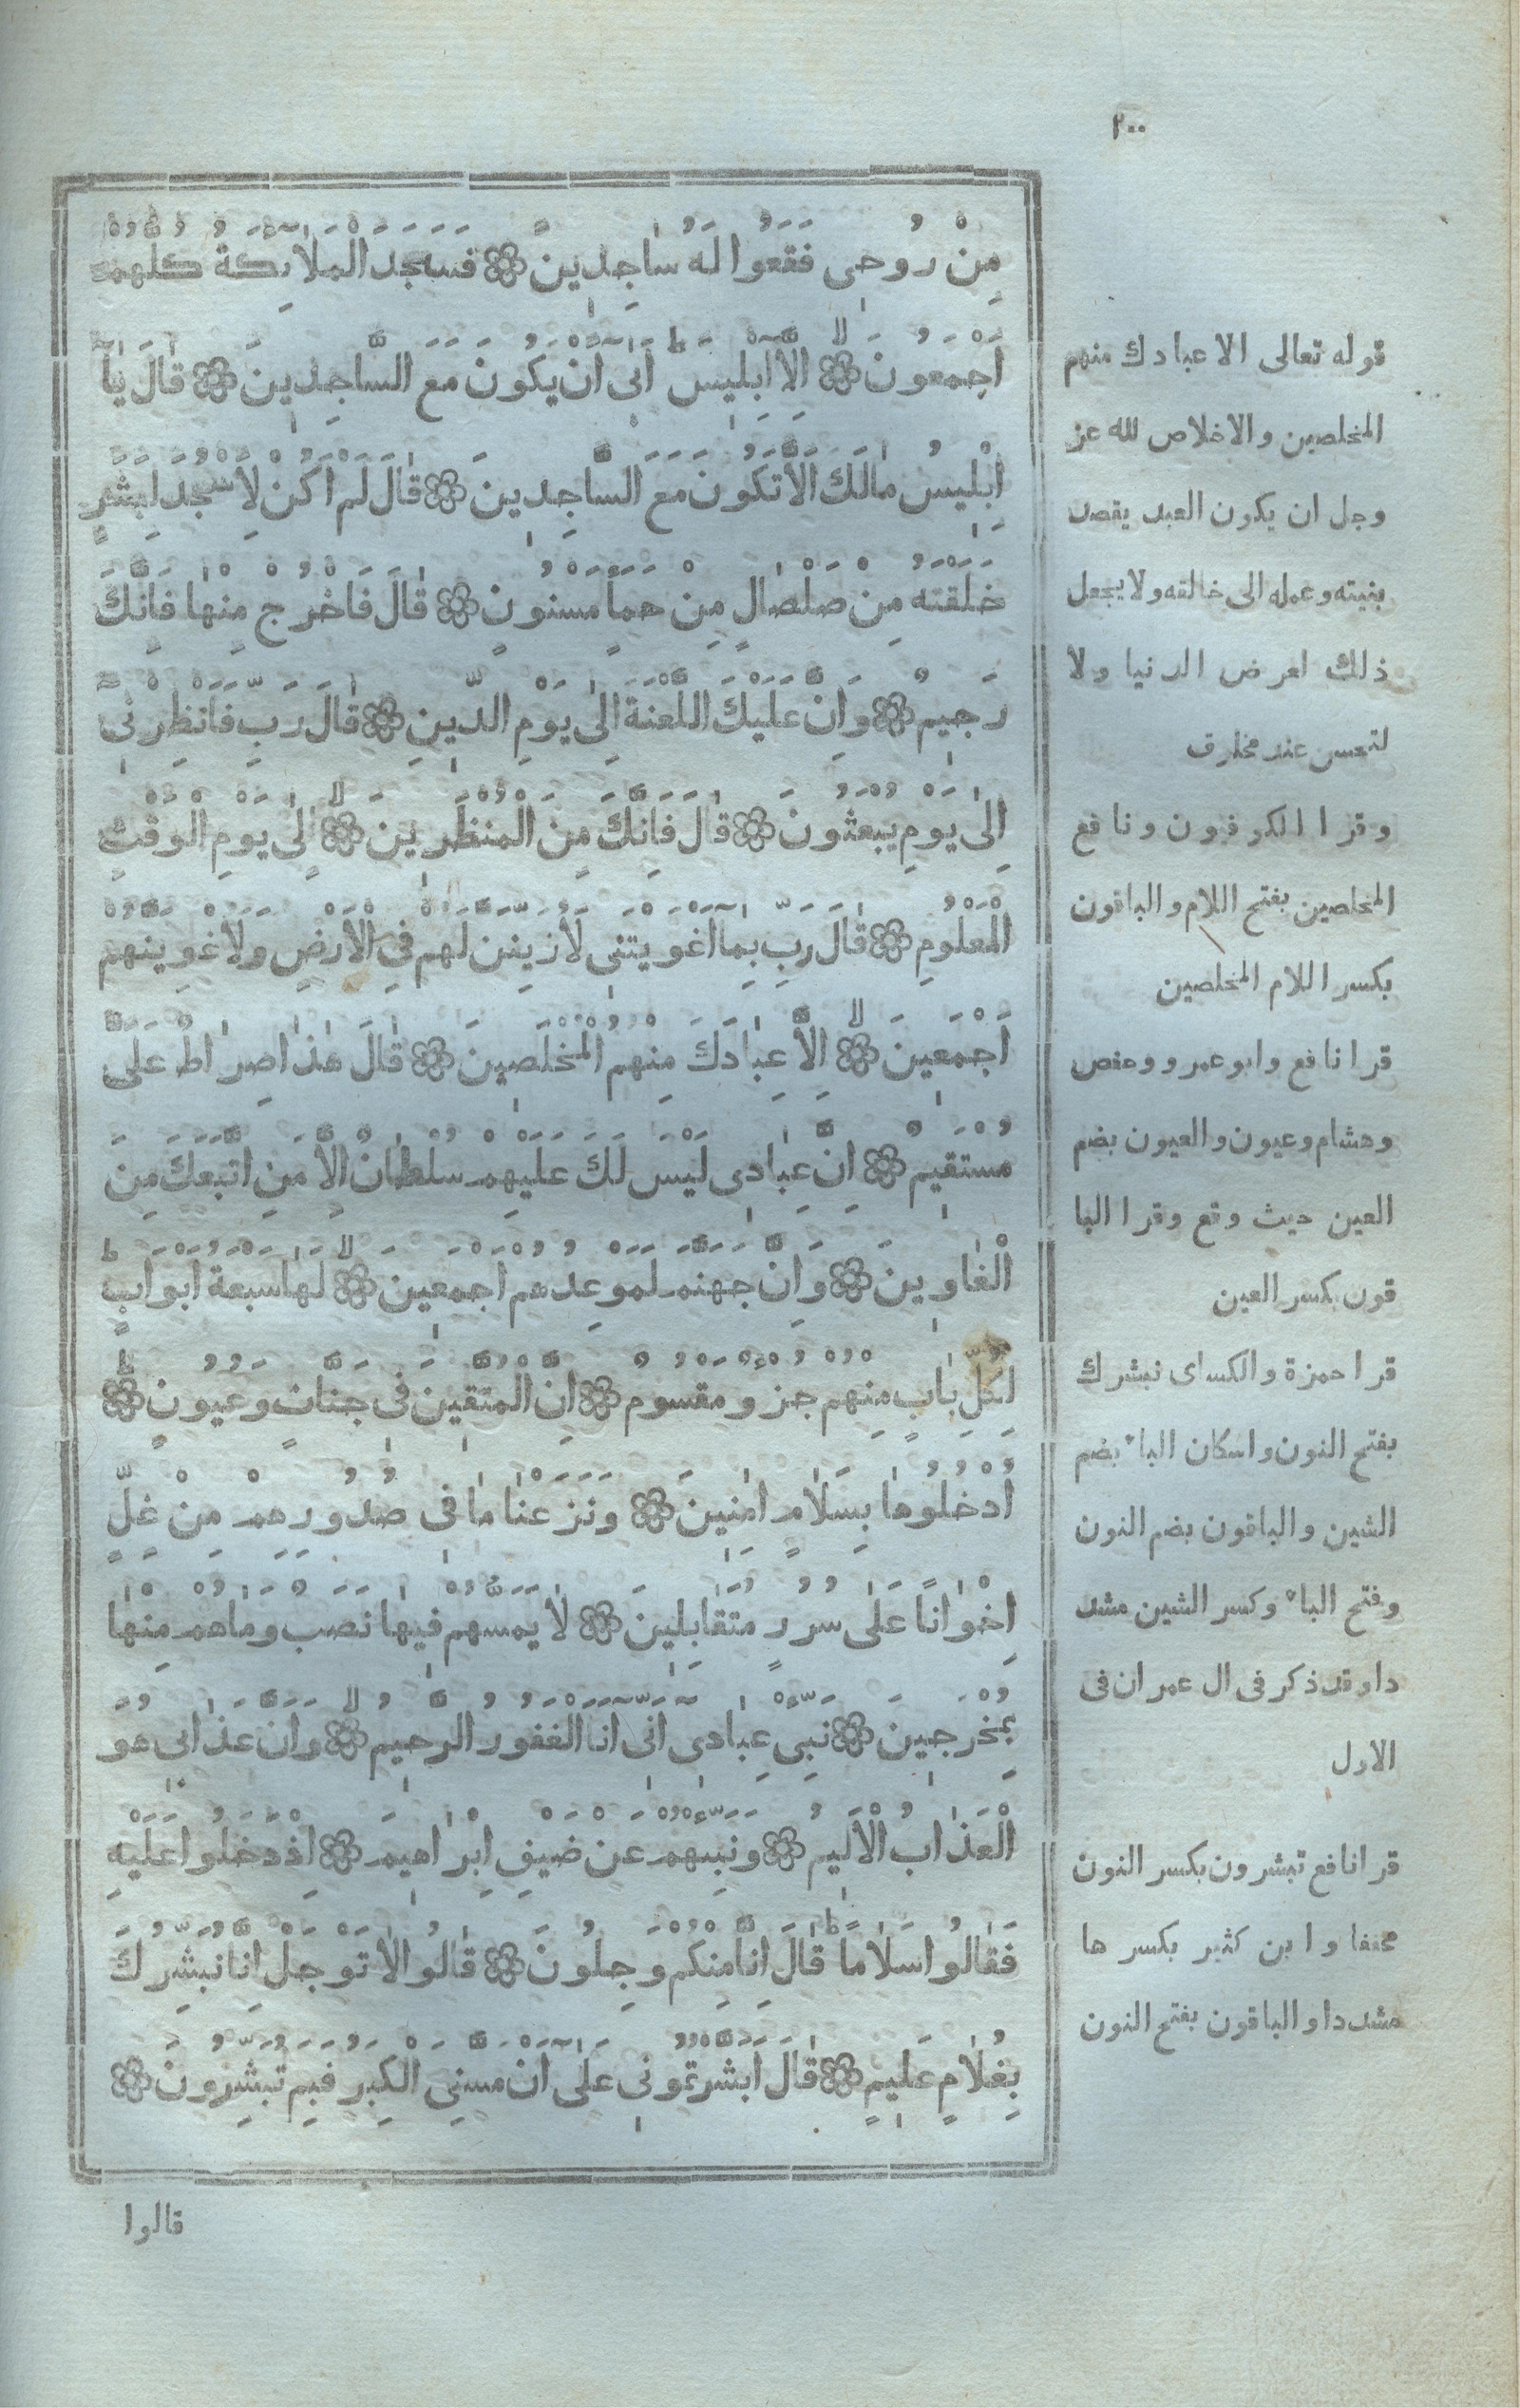 ٢٠٠
مِنْ رُوحِى فَقَعُوا لَهُ سٰاجِدِينَ ۞ فَسَجَدَ الْمَلٰٓائِكَةُ كُلُّهُمْ
اَجْمَعُونَ ۞ اِلَّٓا اِبْلِيسَ اَبٰىٓ اَنْ يَكُونَ مَعَ السَّاجِدِينَ ۞ قٰالَ يٰٓا
اِبْلِيسُ مٰالَكَ اَلَّا تَكُونَ مَعَ السَّاجِدِينَ ۞ قٰالَ لَمْ اَكُنْ لِاَسْجُدَ لِبَشَرٍ
خَلَقْتَهُ مِنْ صَلْصٰالٍ مِنْ حَمَاءٍ مَسْنُونٍ ۞ قٰالَ فَاخْرُجْ مِنْهٰا فَاِنَّكَ
رَجِيمٌ ۞ وَاِنَّ عَلَيْكَ اللَّعْنَةَ اِلٰى يَوْمِ الدِّينِ ۞ قٰالَ رَبِّ فَاَنْظِرْنِىٓ
اِلٰى يَوْمِ يُبْعَثُونَ ۞ قٰالَ فَاِنَّكَ مِنَ الْمُنْظَرِينَ ۞ اِلٰى يَوْمِ الْوَقْتِ
الْمَعْلُومِ ۞ قٰالَ رَبِّ بِمٰٓا اَغْوَيْتَنِى لَاُزَيِّنَنَّ لَهُمْ فِى الْاَرْضِ وَلَاُغْوِيَنَّهُمْ
اَجْمَعِينَ ۞ اِلَّا عِبٰادَكَ مِنْهُمُ الْمُخْلَصِينَ ۞ قٰالَ هٰذٰا صِرٰاطٌ عَلَىَّ
مُسْتَقِيمٌ ۞ اِنَّ عِبٰادِى لَيْسَ لَكَ عَلَيْهِمْ سُلْطٰانٌ اِلَّا مَنِ اتَّبَعَكَ مِنَ
الْغٰاوِينَ ۞ وَاِنَّ جَهَنَّمَ لَمَوْعِدُهُمْ اَجْمَعِينَ ۞ لَهٰا سَبْعَةُ اَبْوٰابٍ
لِكُلِّ بٰابٍ مِنْهُمْ جُزْءٌ مَقْسُومٌ ۞ اِنَّ الْمُتَّقِينَ فِى جَنَّاتٍ وَعُيُونٍ ۞
اُدْخُلُوهٰا بِسَلٰامٍ اٰمِنِينَ ۞ وَنَزَعْنٰا مٰا فِى صُدُورِهِمْ مِنْ غِلٍّ
اِخْوٰانًا عَلٰى سُرُرٍ مُتَقٰابِلِينَ ۞ لٰا يَمَسُّهُمْ فِيهٰا نَصَبٌ وَمٰاهُمْ مِنْهٰا
بِمُخْرَجِينَ ۞ نَبِّئْ عِبٰادِىٓ اَنِّىٓ اَنَا الْغَفُورُ الرَّحِيمُ ۞ وَاَنَّ عَذٰابِى هُوَ
الْعَذٰابُ الْاَلِيمُ ۞ وَنَبِّئْهُمْ عَنْ ضَيْفِ اِبْرٰاهِيمَ ۞ اِذْ دَخَلُوا عَلَيْهِ
فَقٰالُوا سَلٰامًا قٰالَ اِنَّا مِنْكُمْ وَجِلُونَ ۞ قٰالُوا لٰا تَوْجَلْ اِنَّا نُبَشِّرُكَ
بِغُلٰامٍ عَلِيمٍ ۞ قٰالَ اَبَشَّرْتُمُونِى عَلٰىٓ اَنْ مَسَّنِىَ الْكِبَرُ فَبِمَ تُبَشِّرُونَ ۞
قالوا
قوله تعالى الا عبادك منهم
المخلصين والاخلاص لله عز
وجل ان يكون العبد يقصد
بنيته وعمله الى خالقه ولا يجعل
ذلك لعرض الدنيا ولا
لتحسن عند مخلوق
وقرا الكوفيون ونافع
المخلصين بفتح اللام والباقون
بكسر اللام المخلصين
قرا نافع وابو عمرو وحفص
وهشام وعيون والعيون بضم
العين حيث وقع وقرا البا
قون بكسر العين
قرا حمزة والكساى نبشرك
بفتح النون واسكان الباء بضم
الشين والباقون بضم النون
وفتح الباء وكسر الشين مشد
دا وقد ذكر فى ال عمران فى
الاول
قرا نافع تبشرون بكسر النون
مخففا وابن كثير بكسرها
مشددا والباقون بفتح النون